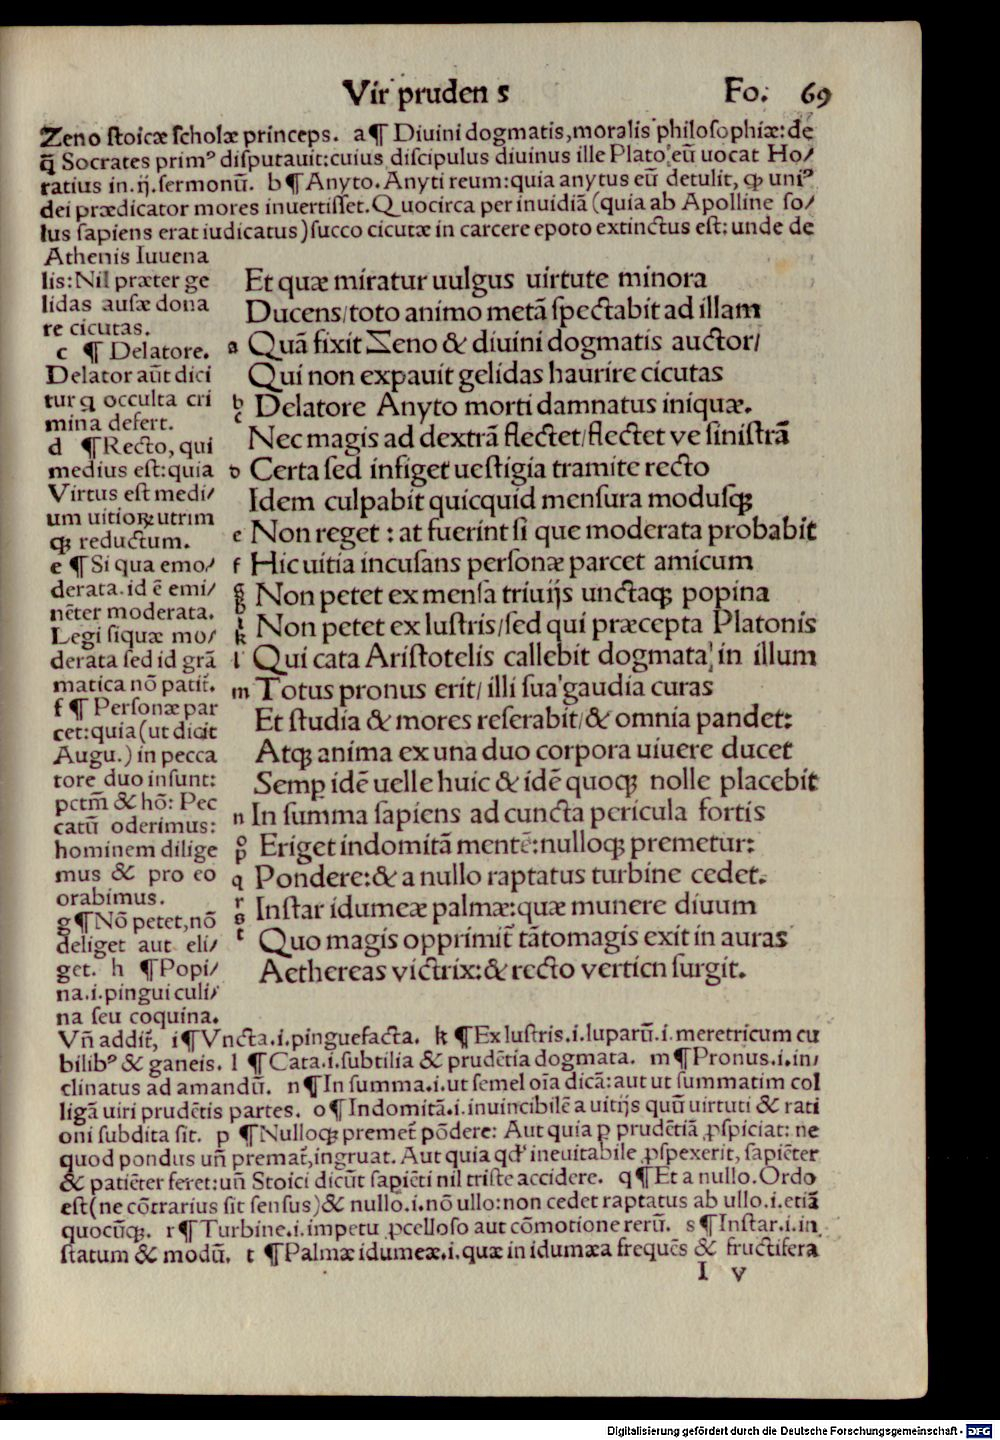 Vir pruden s Fo. 69
Zeno stoicæ scholæ princeps. a¶ Diuini dogmatis,moralis philosophiæ:de
q̄ Socrates primꝰ disputauit:cuius discipulus diuinus ille Plato,eū uocat Ho/
ratius in.ij.sermonū. b¶Anyto.Anyti reum:quia anytus eū detulit, ꝙ uniꝰ
dei prædicator mores inuertisset.Quocirca per inuidiā(quia ab Apolline so/
lus sapiens erat iudicatus)succo cicutæ in carcere epoto extinctus est:unde de
Athenis Iuuena
lis:Nil præter ge
lidas ausæ dona
re cicutas.
c ¶ Delatore.
Delator aūt dici
tur q occulta cri
mina defert.
d ¶Recto, qui
medius est:quia
Virtus est medi/
um uitioꝝ:utrim
ꝙ reductum.
e ¶Si qua emo/
derata.id ē emi/
nēter moderata.
Legi siquæ mo/
derata sed id grā
matica nō patit̃.
f ¶ Personæ par
cet:quia(ut dicit
Augu.) in pecca
tore duo insunt:
pctm̄ & hō: Pec
catū oderimus:
hominem dilige
mus & pro eo
orabimus.
g¶Nō petet,nō
deliget aut eli/
get. h ¶Popi/
na.i.pingui culi/
na seu coquina.
Et quæ miratur uulgus uirtute minora
Ducens/toto animo metā spectabit ad illam
a Quā fixit Zeno & diuini dogmatis auctor/
Qui non expauit gelidas haurire cicutas
b c Delatore Anyto morti damnatus iniquæ.
Nec magis ad dextrā flectet/flectet ve sinistrā
d Certa sed infiget uestigia tramite recto
Idem culpabit quicquid mensura modusꝗ
e Non reget : at fuerint si que moderata probabit
f Hic uitia incusans personæ parcet amicum
g h Non petet ex mensa triuijs unctaꝗ popina
i k Non petet ex lustris/sed qui præcepta Platonis
l Qui cata Aristotelis callebit dogmata,in illum
m Totus pronus erit/ illi sua gaudia curas
Et studia & mores reserabit/& omnia pandet:
Atꝗ anima ex una duo corpora uiuere ducet
Semp idē uelle huic & idē quoꝗ nolle placebit
n In summa sapiens ad cuncta pericula fortis
o p Eriget indomitā mentē:nulloꝗ premetur:
q Pondere:& a nullo raptatus turbine cedet.
r s Instar idumeæ palmæ:quæ munere diuum
t Quo magis opprimit̃ tātomagis exit in auras
Aethereas victrix:& recto verticn surgit.
Vñ addit̃, i¶Vncta.i.pinguefacta. k ¶Ex lustris.i.luparū.i.meretricum cu
bilibꝰ & ganeis. l ¶Cata.i.subtilia & prudētia dogmata. m¶Pronus.i.in/
clinatus ad amandū. n¶In summa.i.ut semel oīa dicā:aut ut summatim col
ligā uiri prudētis partes. o¶Indomitā.i.inuincibilē a uitijs quū uirtuti & rati
oni subdita sit. p ¶Nulloꝗ premet̃ pōdere: Aut quia p prudētiā ꝓspiciat: ne
quod pondus uñ premat̃,ingruat. Aut quia qd' ineuitabile ꝓspexerit, sapiēter
& patiēter feret:uñ Stoici dicūt sapiēti nil triste accidere. q¶Et a nullo.Ordo
est(ne cōtrarius sit sensus)& nullo.i.nō ullo:non cedet raptatus ab ullo.i.etiā
quocūꝗ. r¶Turbine.i.impetu ꝓcelloso aut cōmotione rerū. s¶Instar.i.in
statum & modū. t ¶Palmæ idumeæ.i.quæ in idumæa frequēs & fructifera
I v
Digitalisierung gefördert durch die Deutsche Forschungsgemeinschaft - DFG